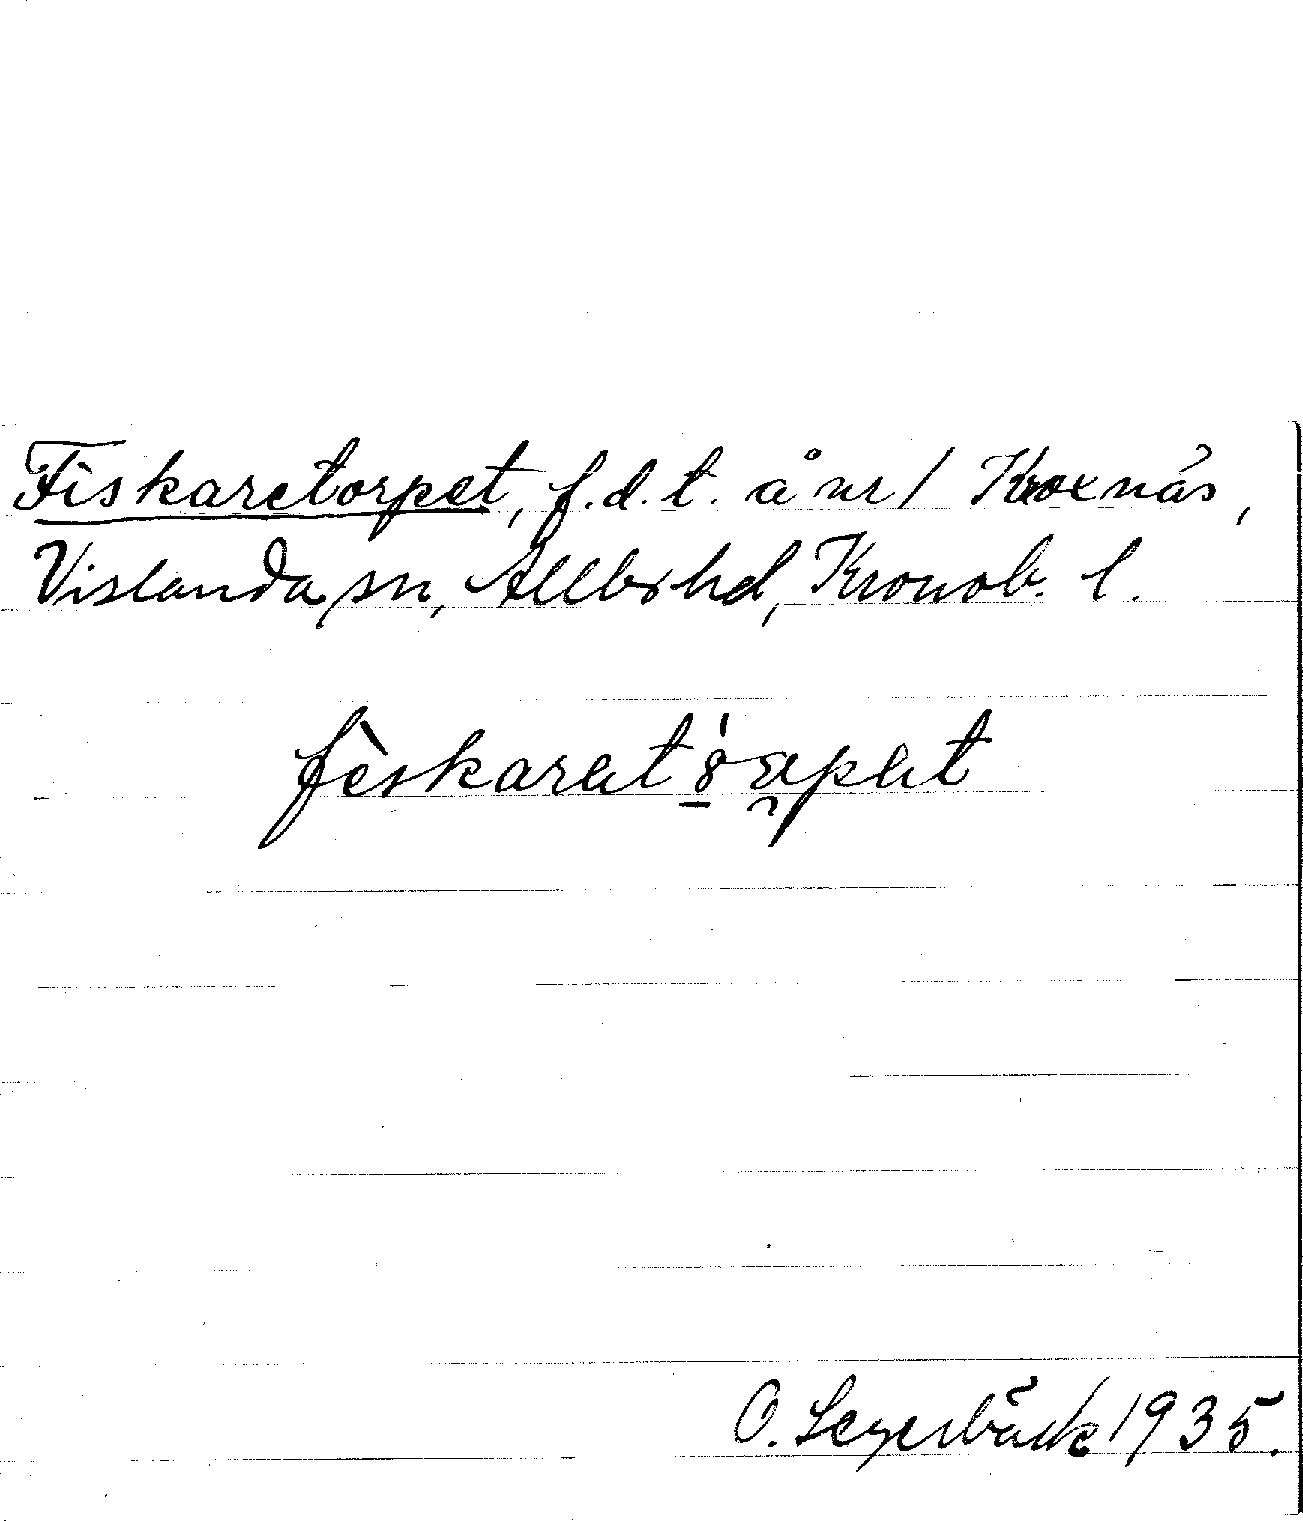 Fiskaretorpet, f.d.t. å nr 1 Kroxnäs,
Vislanda sn, Allbo hd, Kronob. l.
fèskaret
O. Segerbäck 1935.